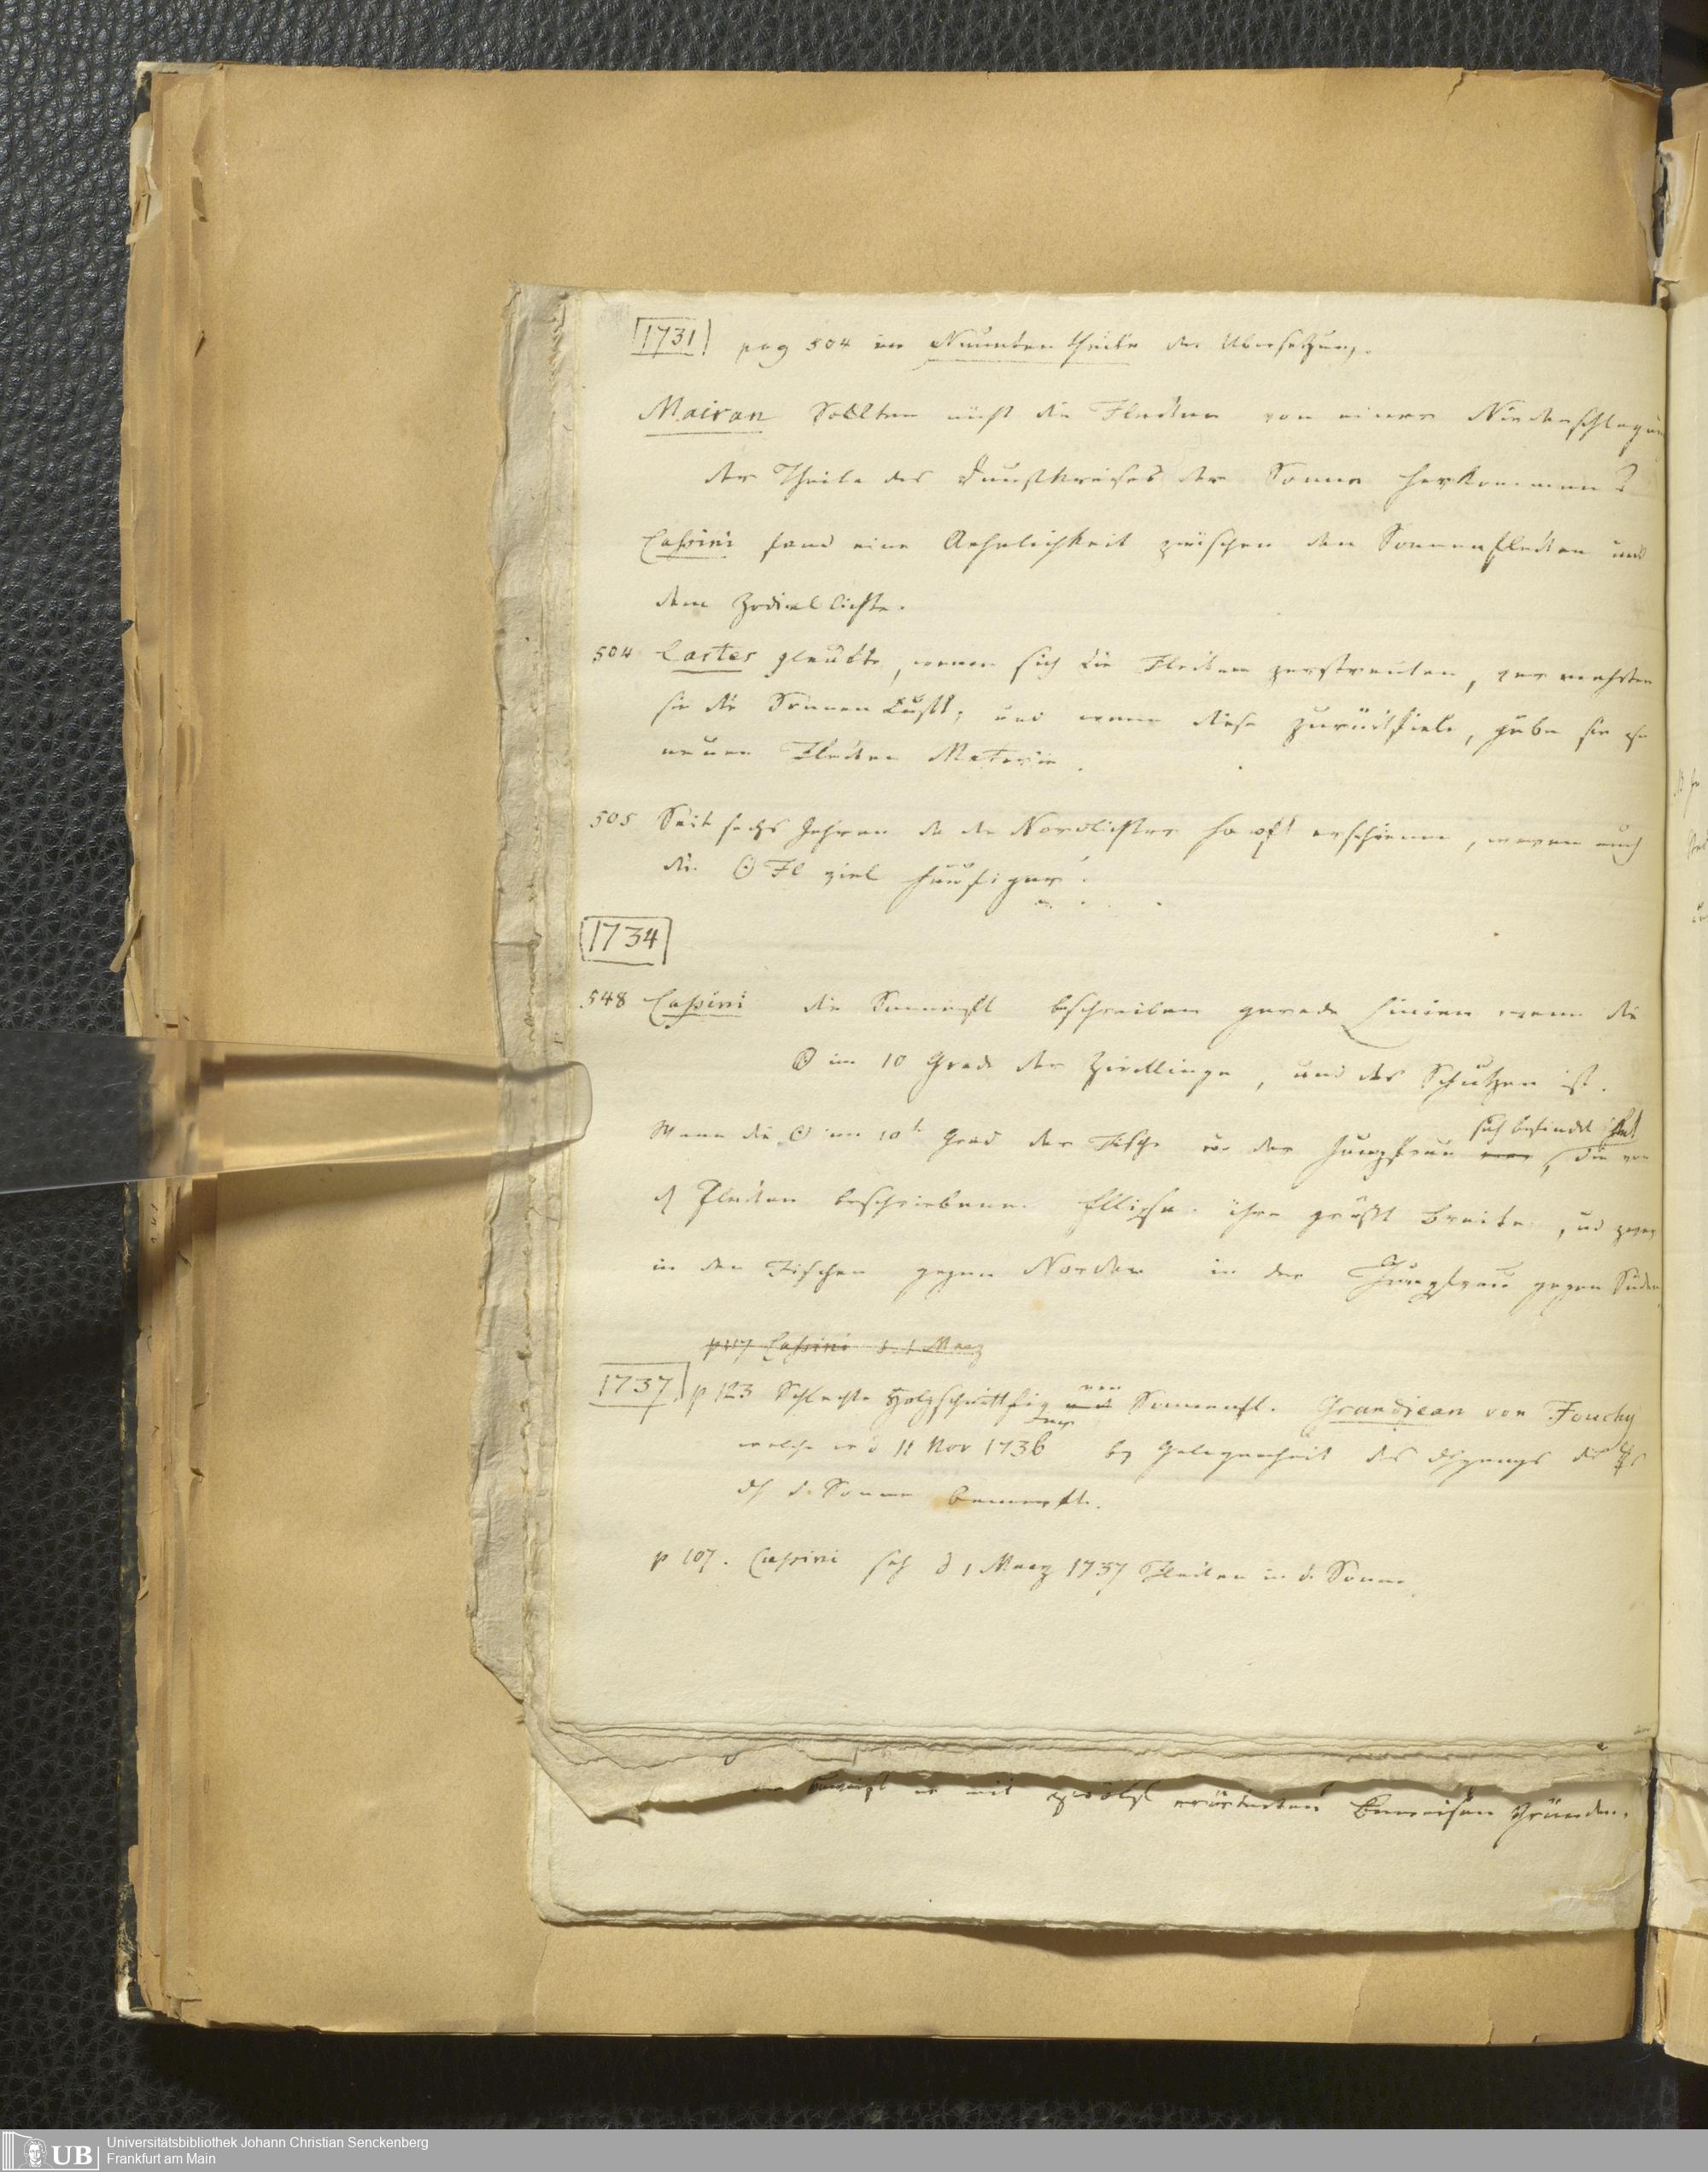 1731 pag 504 im Neunten Theile der Übersetzung.
Mairan Sollten nicht die Flecken von einer Niederschlagung
der Theile des Dunstkreises der Sonne herkommen?
Caßini fand eine Aehnlichkeit zwischen den Sonnenflecken und
dem Zodiallichte.
504 Cartes glaubte, wenn sich die Flecken zerstreuten, vermehrten
sie die Sonnen Luft, und wenn diese zurückfiele, gäbe sie zu
neuen Flecken Materie.
505 Seit sechs Jahren da die Nordlichter so oft erschienen, waren auch
die ☉ Fl viel häufiger.
1734
548 Caßini die Sonnenfl beschreiben gerade Linien wenn die
☉ im 10 Grade der Zwillinge, und des Schützen ist.
sich befindet hat
Wenn die ☉ im 10t Grad der Fische oder der Jungfrau, die von
d Flecken beschriebene Ellipse ihre größte Breite, und zwar
in den Fischen gegen Norden in der Jungfrau gegen Süden
p 107 Caßini d. 1 Maerz
1737 p 123 Schlechte Holzschnittfig von Sonnenfl. Grandjean von Fouchy
welche er d 11 Nov 1736 bey Gelegenheit des dchgangs des ☿s
dch d. Sonne bemerkte.
p 107. Caßini sah d 1 Maerz 1737 Flecken in d. Sonne.
er mit erörterten Beweisen Gründen.
UB Universitätsbibliothek Johann Christian Senckenberg
Frankfurt am Main